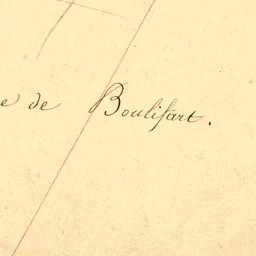 e de Boulifart.